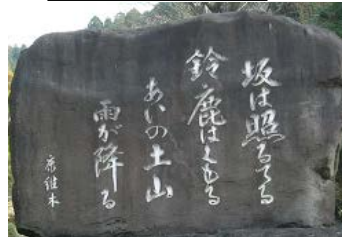 坂は照るてる
鈴鹿はくもる
あいの土山
雨が降る